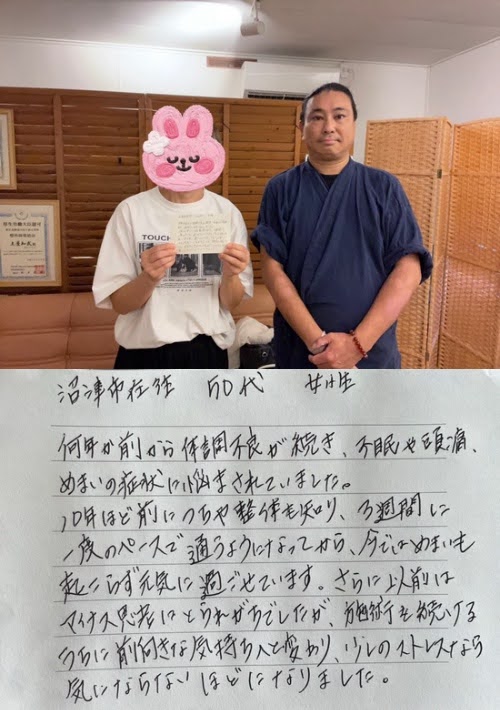 TOUCH
沼津市在住　50代　女性
何年か前から体調不良が続き、不眠や頭痛、
めまいの症状に悩まされていました。
10年ほど前につちや整体を知り、3週間に
一度のペースで通うようになってから、今ではめまいも
起こらず元気に過ごせています。さらに以前は
マイナス思考にとらわれがちでしたが、施術を続ける
うちに前向きな気持ちへと変わり、少しのストレスなら
気にならないほどになりました。